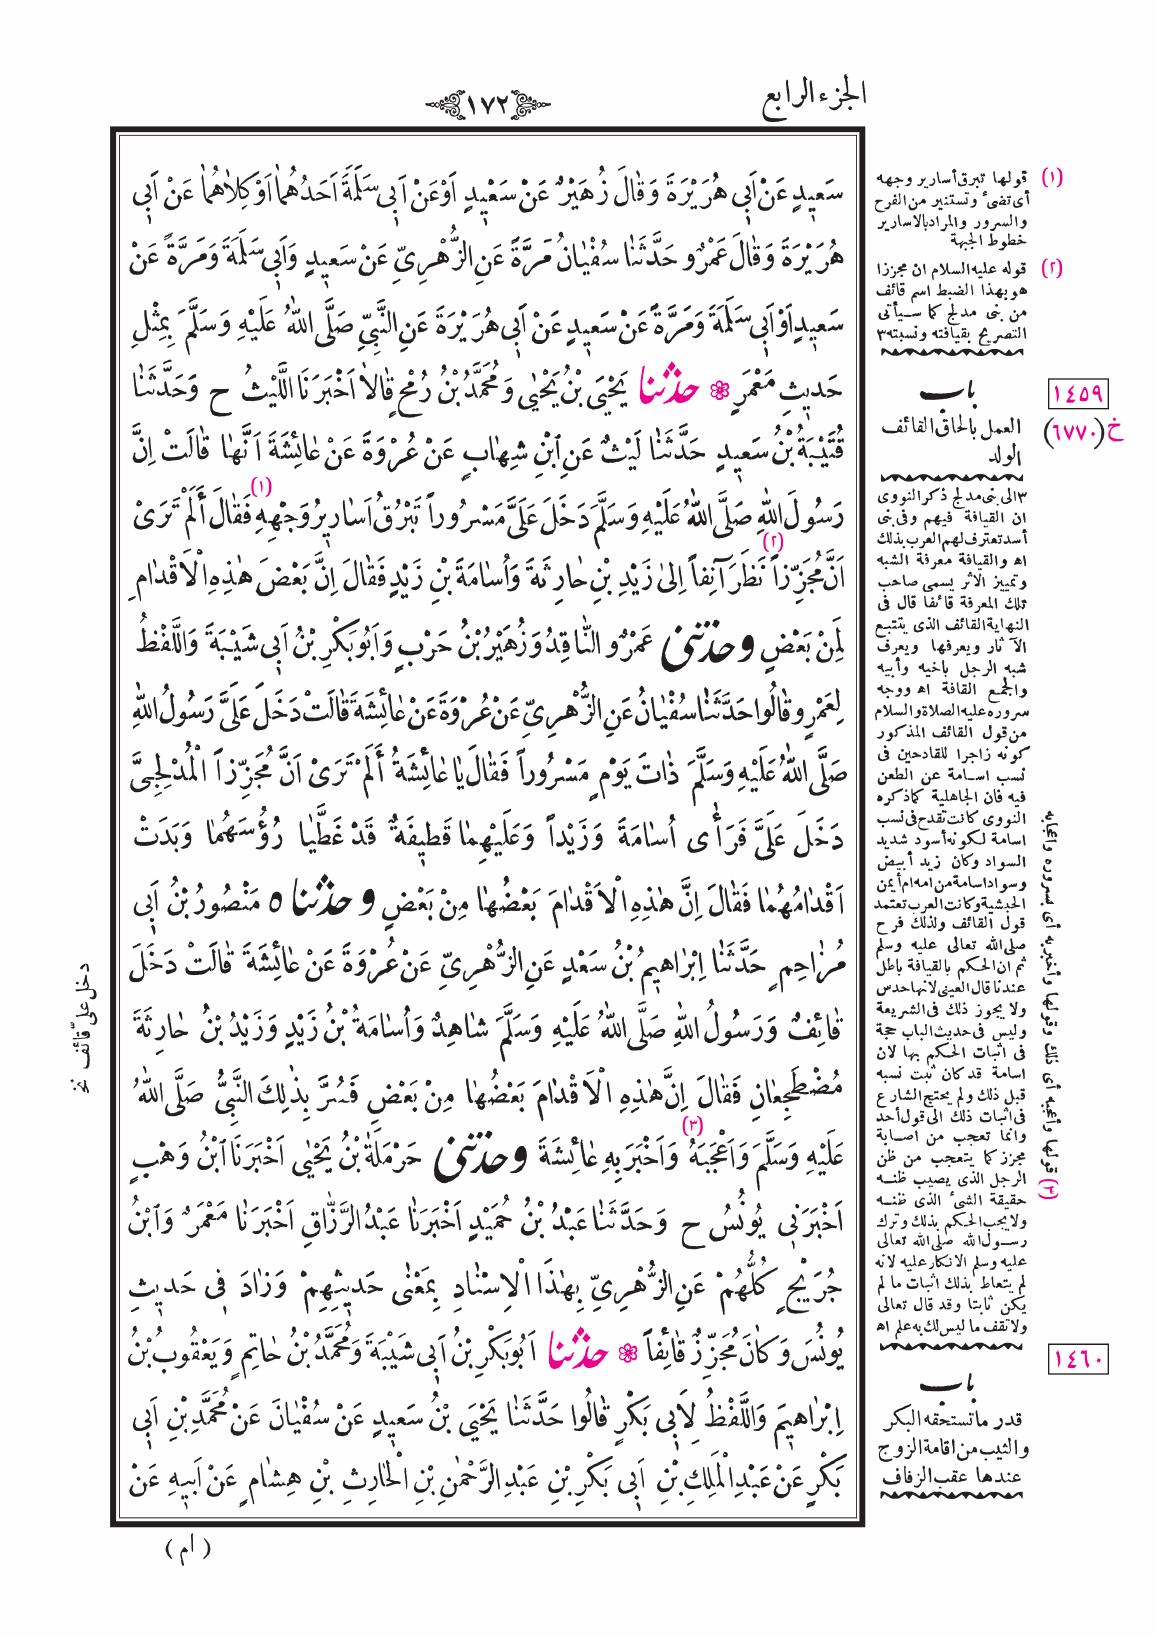 الجزء الرابع
١٧٢
سَعيدٍ عَنْ اَبى هُرَيْرَةَ وَقَالَ زُهَيْرٌ عَنْ سَعيدٍ اَوْ عَنْ اَبى سَلَمَةَ اَحَدُهُمَا اَوْ كِلَاهُمَا عَنْ اَبى
هُرَيْرَةَ وَقَالَ عَمْرٌو حَدَّثَنَا سُفْيَانُ مَرَّةً عَنِ الزُّهْرِىِّ عَنْ سَعيدٍ وَاَبى سَلَمَةَ وَمَرَّةً عَنْ
سَعيدٍ اَوْ اَبى سَلَمَةَ وَمَرَّةً عَنْ سَعيدٍ عَنْ اَبى هُرَيْرَةَ عَنِ النَّبِىِّ صَلَّى اللّٰهُ عَلَيْهِ وَسَلَّمَ بِمِثْلِ
حَديثِ مَعْمَرٍ ❁ حَدَّثَنَا يَحْيَى بْنُ يَحْيٰى وَمُحَمَّدُ بْنُ رُمْحٍ قَالَا اَخْبَرَنَا اللَّيْثُ ح وَحَدَّثَنَا
قُتَيْبَةُ بْنُ سَعيدٍ حَدَّثَنَا لَيْثٌ عَنِ ابْنِ شِهَابٍ عَنْ عُرْوَةَ عَنْ عَائِشَةَ اَنَّهَا قَالَتْ اِنَّ
رَسُولَ اللّٰهِ صَلَّى اللّٰهُ عَلَيْهِ وَسَلَّمَ دَخَلَ عَلَىَّ مَسْرُوراً تَبْرُقُ اَسَاريرُ وَجْهِهِ (١) فَقَالَ أَلَمْ تَرَىْ
اَنَّ مُجَزِّزاً (٢) نَظَرَ آنِفاً اِلىٰ زَيْدِ بْنِ حَارِثَةَ وَأُسَامَةَ بْنِ زَيْدٍ فَقَالَ اِنَّ بَعْضَ هٰذِهِ الْاَقْدَامِ
لَمِنْ بَعْضٍ وحَدَّثَنى عَمْرٌو النَّاقِدُ وَزُهَيْرُ بْنُ حَرْبٍ وَاَبُو بَكْرِ بْنُ اَبى شَيْبَةَ وَاللَّفْظُ
لِعَمْرٍو قَالُوا حَدَّثَنَا سُفْيَانُ عَنِ الزُّهْرِىِّ عَنْ عُرْوَةَ عَنْ عَائِشَةَ قَالَتْ دَخَلَ عَلَىَّ رَسُولُ اللّٰهِ
صَلَّى اللّٰهُ عَلَيْهِ وَسَلَّمَ ذَاتَ يَوْمٍ مَسْرُوراً فَقَالَ يَا عَائِشَةُ أَلَمْ تَرَىْ اَنَّ مُجَزِّزاً الْمُدْلِجِىَّ
دَخَلَ عَلَىَّ فَرَأٰى اُسَامَةَ وَزَيْداً وَعَلَيْهِمَا قَطيفَةٌ قَدْ غَطَّيَا رُؤُسَهُمَا وَبَدَتْ
اَقْدَامُهُمَا فَقَالَ اِنَّ هٰذِهِ الْاَقْدَامَ بَعْضُهَا مِنْ بَعْضٍ وحَدَّثَنَاه مَنْصُورُ بْنُ اَبى
مُزَاحِمٍ حَدَّثَنَا اِبْرَاهيمُ بْنُ سَعْدٍ عَنِ الزُّهْرِىِّ عَنْ عُرْوَةَ عَنْ عَائِشَةَ قَالَتْ دَخَلَ
قَائِفٌ وَرَسُولُ اللّٰهِ صَلَّى اللّٰهُ عَلَيْهِ وَسَلَّمَ شَاهِدٌ وَأُسَامَةُ بْنُ زَيْدٍ وَزَيْدُ بْنُ حَارِثَةَ
مُضْطَجِعَانِ فَقَالَ اِنَّ هٰذِهِ الْاَقْدَامَ بَعْضُهَا مِنْ بَعْضٍ فَسُرَّ بِذٰلِكَ النَّبِىُّ صَلَّى اللّٰهُ
عَلَيْهِ وَسَلَّمَ وَاَعْجَبَهُ (٣) وَاَخْبَرَ بِهِ عَائِشَةَ وحَدَّثَنى حَرْمَلَةُ بْنُ يَحْيٰى اَخْبَرَنَا ابْنُ وَهْبٍ
اَخْبَرَنى يُونُسُ ح وَحَدَّثَنَا عَبْدُ بْنُ حُمَيْدٍ اَخْبَرَنَا عَبْدُ الرَّزَّاقِ اَخْبَرَنَا مَعْمَرٌ وَابْنُ
جُرَيْجٍ كُلُّهُمْ عَنِ الزُّهْرِىِّ بِهٰذَا الْاِسْنَادِ بِمَعْنٰى حَديثِهِمْ وَزَادَ فى حَديثِ
يُونُسَ وَكَانَ مُجَزِّزٌ قَائِفاً ❁ حَدَّثَنَا اَبُو بَكْرِ بْنُ اَبى شَيْبَةَ وَمُحَمَّدُ بْنُ حَاتِمٍ وَيَعْقُوبُ بْنُ
اِبْرَاهيمَ وَاللَّفْظُ لِاَبى بَكْرٍ قَالُوا حَدَّثَنَا يَحْيَى بْنُ سَعيدٍ عَنْ سُفْيَانَ عَنْ مُحَمَّدِ بْنِ اَبى
بَكْرٍ عَنْ عَبْدِ الْمَلِكِ بْنِ اَبى بَكْرِ بْنِ عَبْدِ الرَّحْمٰنِ بْنِ الْحَارِثِ بْنِ هِشَامٍ عَنْ اَبيهِ عَنْ
( ام )
(١) قولها تبرق أسارير وجهه
أى تضىٔ وتستنير من الفرح
والسرور والمراد بالاسارير
خطوط الجبهة
(٢) قوله عليه السلام ان مجززا
هو بهذا الضبط اسم قائف
من بنى مدلج كما سيأتى
التصريح بقيافته ونسبته ٣
١٤٥٩
خ (٦٧٧٠)
باب
العمل بالحاق القائف
الولد
٣ الى بنى مدلج ذكر النووى
ان القيافة فيهم وفى بنى
أسد تعترف لهم العرب بذلك
اه والقيافة معرفة الشبه
وتمييز الأثر يسمى صاحب
تلك المعرفة قائفا قال فى
النهاية القائف الذى يتتبع
الآثار ويعرفها ويعرف
شبه الرجل بأخيه وأبيه
والجمع القافة اه ووجه
سروره عليه الصلاة والسلام
من قول القائف المذكور
كونه زاجرا للقادحين فى
نسب اسامة عن الطعن
فيه فان الجاهلية كما ذكره
النووى كانت تقدح فى نسب
اسامة لكونه أسود شديد
السواد وكان زيد أبيض
وسواد اسامة من امه ام أيمن
الحبشية وكانت العرب تعتمد
قول القائف ولذلك فرح
صلى الله تعالى عليه وسلم
ثم ان الحكم بالقيافة باطل
عندنا قال العينى لانها حدس
ولا يجوز ذلك فى الشريعة
وليس فى حديث الباب حجة
فى اثبات الحكم بها لان
اسامة قد كان ثبت نسبه
قبل ذلك ولم يحتج الشارع
فى اثبات ذلك الى قول أحد
وانما تعجب من اصابة
مجزز كما يتعجب من ظن
الرجل الذى يصيب ظنه
حقيقة الشئ الذى ظنه
ولا يجب الحكم بذلك وترك
رسول الله صلى الله تعالى
عليه وسلم الانكار عليه لانه
لم يتعاط بذلك اثبات ما لم
يكن ثابتا وقد قال تعالى
ولا تقف ما ليس لك به علم اه
١٤٦٠
باب
قدر ما تستحقه البكر
والثيب من اقامة الزوج
عندها عقب الزفاف
(٣) قولها وأعجبه أى ذلك وقولها وأخبر به أى سروره واعجابه
دخل علىّ قائف نخ